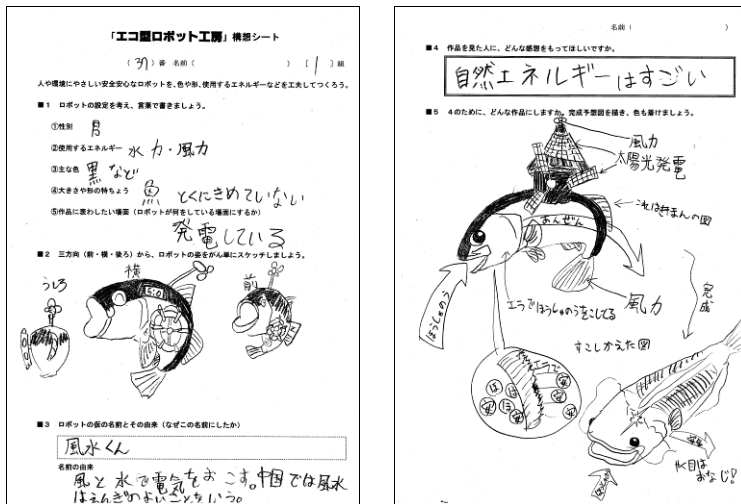 「エコ型ロボット工房」構想シート
（ 37 ）番 名前（ ） ［ 1 ］組
人や環境にやさしい安全安心なロボットを、色や形、使用するエネルギーなどを工夫してつくろう。
■1 ロボットの設定を考え、言葉で書きましょう。
①性別
②使用するエネルギー 水力・風力
③主な色 黒など
④大きさや形の特ちょう 魚 とくにきめていない
⑤作品に表わしたい場面（ロボットが何をしている場面にするか）
発電している
■2 三方向（前・横・後ろ）から、ロボットの姿をかん単にスケッチしましょう。
うしろ
横
前
■3 ロボットの仮の名前とその由来（なぜこの名前にしたか）
風水くん
名前の由来
風と水で電気をおこす。中国では風水
はえんぎのよいことをいう。
名前（ ）
■4 作品を見た人に、どんな感想をもってほしいですか。
自然エネルギーはすごい
■5 4のために、どんな作品にしますか。完成予想図を描き、色も着けましょう。
風力
太陽光発電
あんぜん
ほうしゃのう
風力
エラでほうしゃのうをこしてる
完成
すこしかえた図
エラで
ほ
安
水目はおなじ!